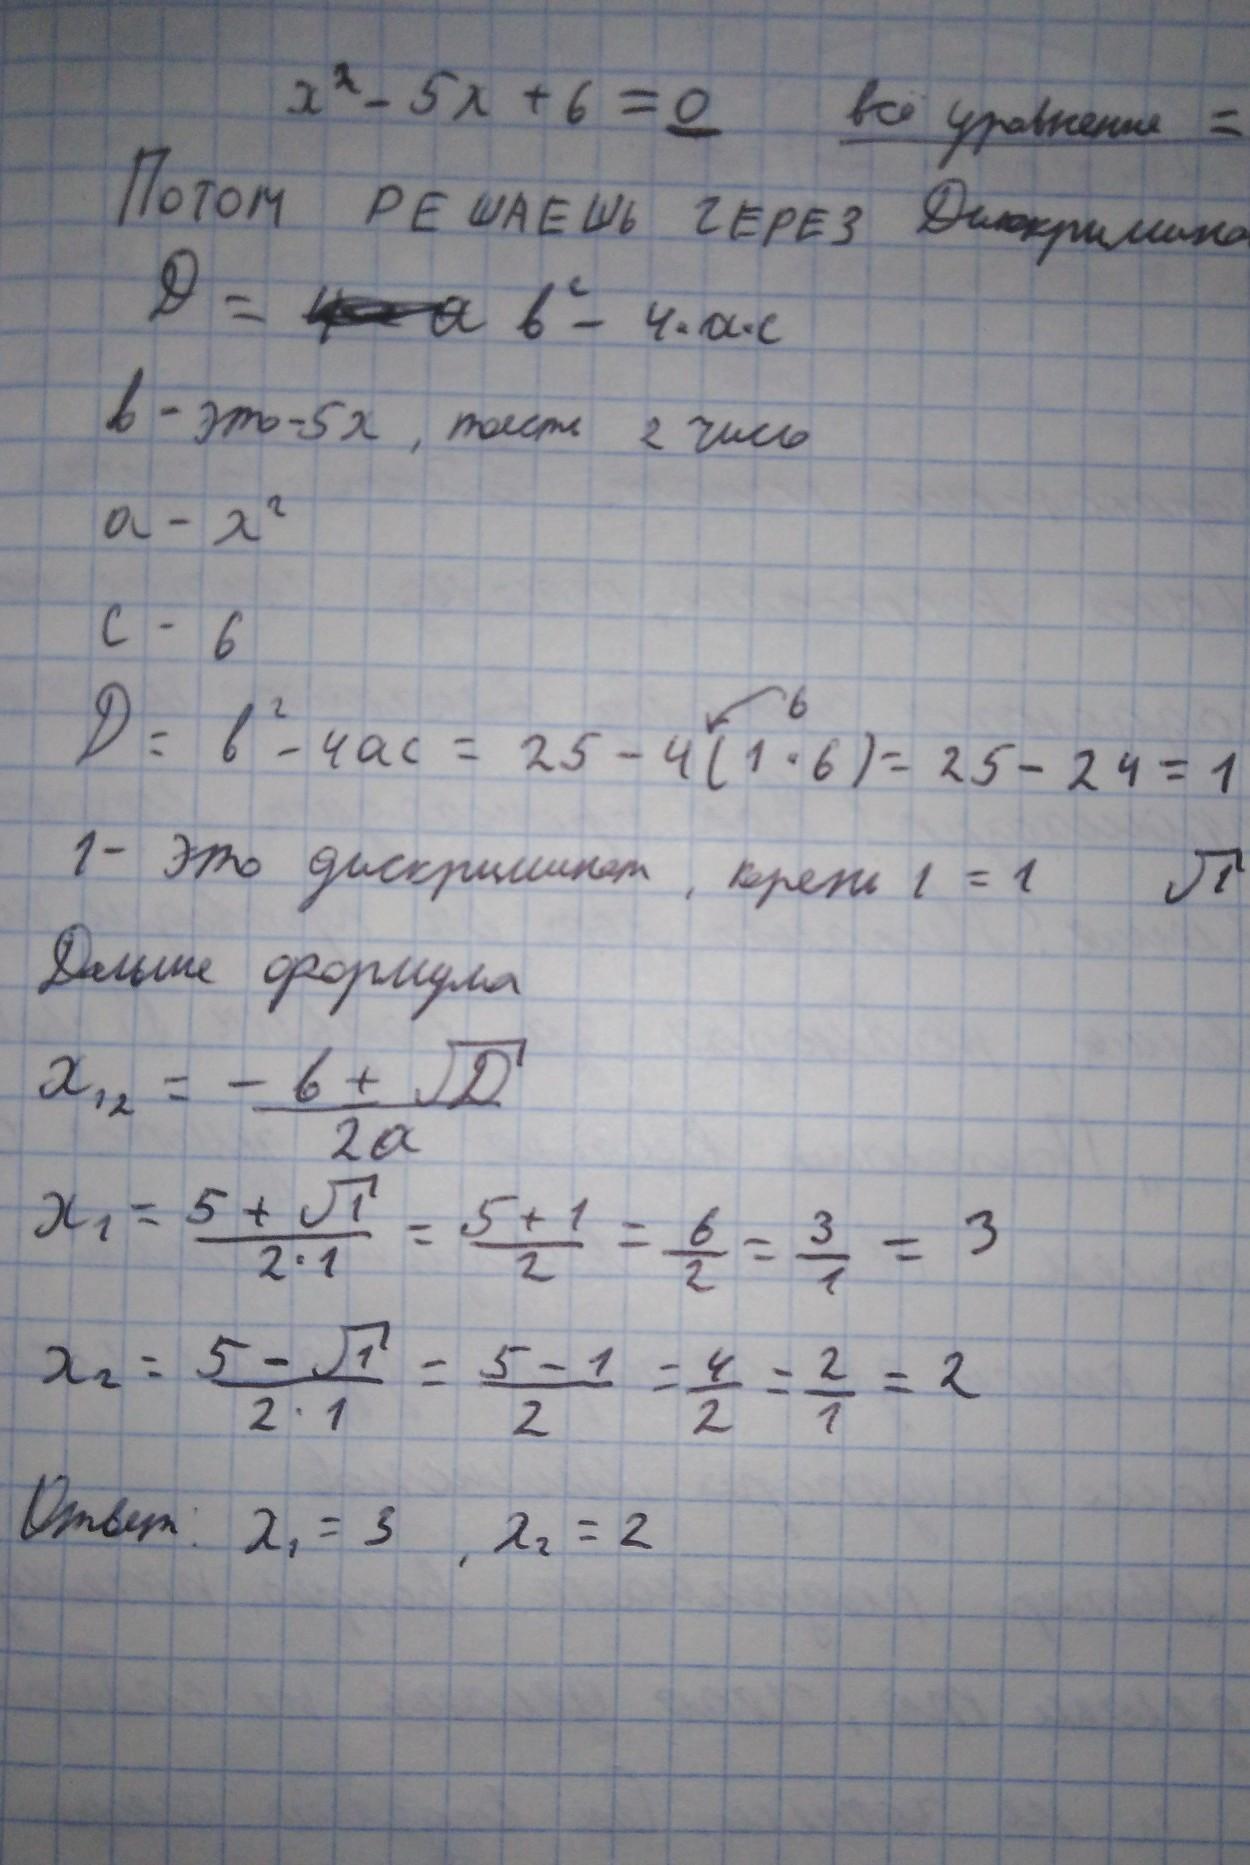 x² - 5x + 6 = 0 всё уравнение =
Потом РЕШАЕШЬ ЧЕРЕЗ Дискримина
D = b² - 4·a·c
b - это -5x, тоесть 2 число
a - x²
c - 6
6
D = b² - 4ac = 25 - 4(1·6) = 25 - 24 = 1
1 - это дискриминант, корень 1 = 1 √1
Дальше формула
x₁₂ = (-b + √D)/2a
x₁ = (5 + √1)/(2·1) = (5+1)/2 = 6/2 = 3/1 = 3
x₂ = (5 - √1)/(2·1) = (5-1)/2 = 4/2 = 2/1 = 2
Ответ: x₁ = 3, x₂ = 2